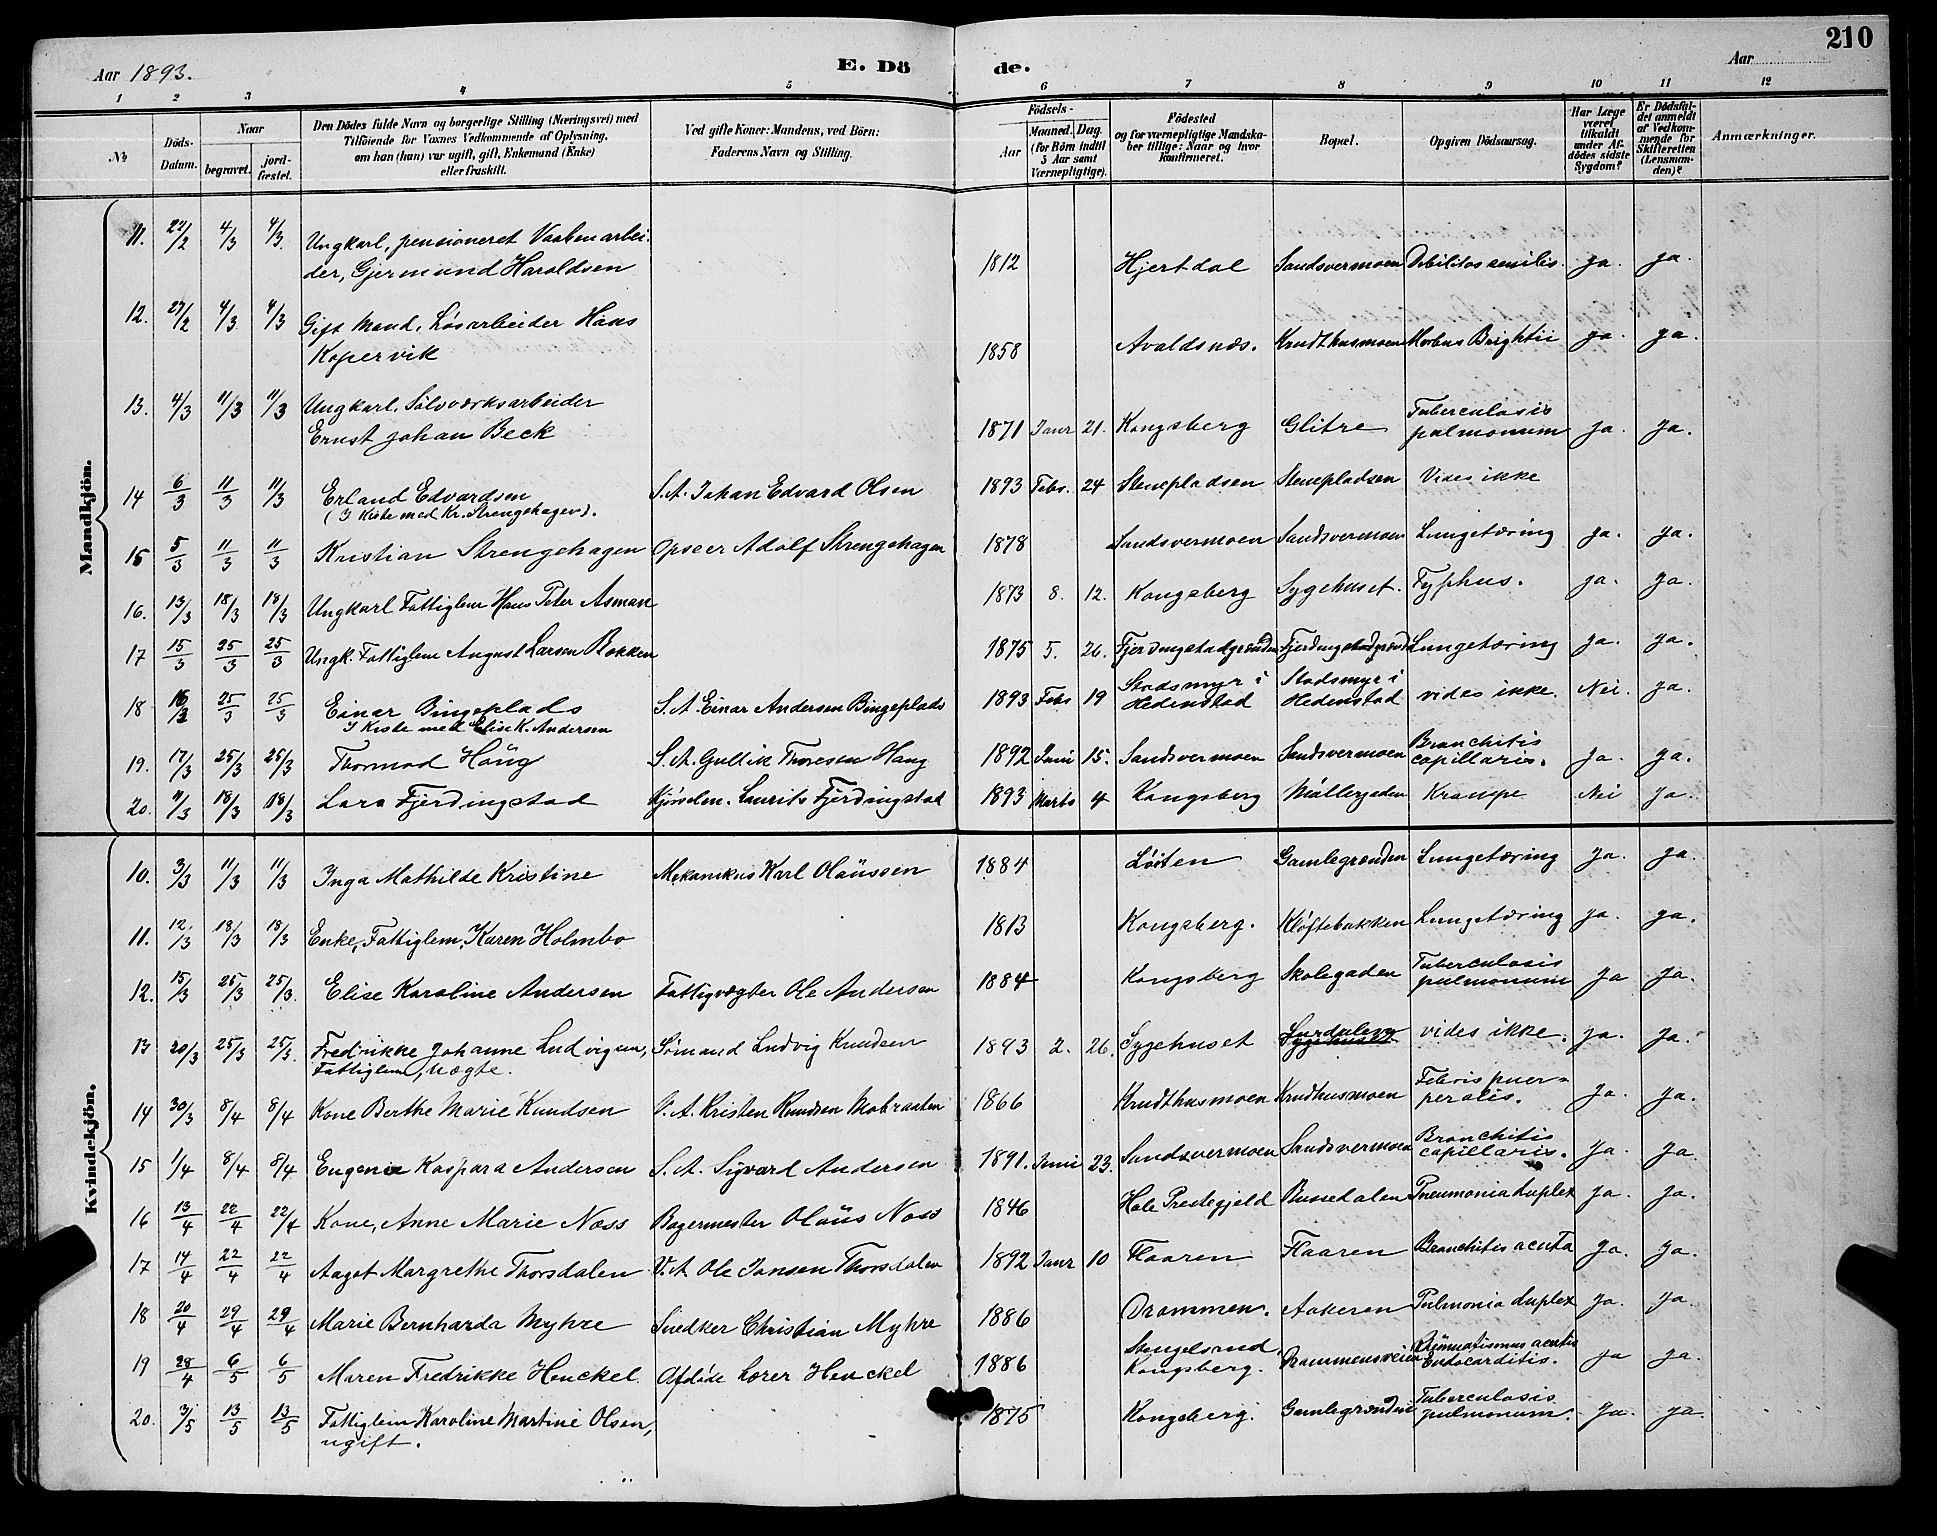 210
Aar 1893. E. Dö de. Aar
1 2 3 4 5 6 7 8 9 10 11 12
No
Döds-Datum.
Naar
begravet.
jord-fæstet.
Den Dödes fulde Navn og borgerlige Stilling (Næringsvei) med
Tilföiende for Voxnes Vedkommende af Oplysning,
om han (hun) var ugift, gift, Enkemand (Enke)
eller fraskilt.
Ved gifte Koner: Mandens, ved Börn:
Faderens Navn og Stilling.
Födsels-
Aar
Maaned. Dag.
(for Börn indtil
5 Aar samt
Værnepligtige).
Födested
og for værnepligtige Mandska-
ber tillige: Naar og hvor
konfirmeret.
Bopæl.
Opgiven Dödsaarsag.
Har Læge
været
tilkaldt
under Af-
dødes sidste
Sygdom?
Er Dödsfal-
det anmeldt
af Vedkom-
mende for
Skifteretten
(Lensman-
den)?
Anmærkninger.
Mandkjön.
11. 22/2 4/3 4/3. Ungkarl, pensioneret Vaabenarbei-
der, Gjermund Haraldsen 1812 Hjertdal Sandsvermoen Debilitas senilis. ja. ja.
12. 27/2 4/3 4/3 Gift Mand, Løsarbeider Hans
Kopervik 1858 Avaldsnæs. Krudthusmoen Morbus Brightii ja. ja.
13. 4/3 11/3 11/3 Ungkarl, Sølvværksarbeider
Ernst Johan Beck 1871 Janr 21. Kongsberg Glitre Tuberculosis
pulmonum ja. ja.
14 6/3 11/3 11/3 Erland Edvardsen S.A. Johan Edvard Olsen 1893 Febr. 24 Stenepladsen Stenepladsen Vides ikke
(I Kiste med Kr. Strengehagen).
15 5/3 11/3 11/3 Kristian Strengehagen Opseer Adolf Strengehagen 1878 Sandsvermoen Sandsvermoen Lungetæring ja. ja.
16. 13/3 18/3 18/3 Ungkarl Fattiglem Hans Peter Asman 1873 8. 12. Kongsberg Sygehuset. Typhus. ja. ja.
17 15/3 25/3 25/3 Ungk. Fattiglem August Larsen Bakken 1875 5. 26. Fjerdingstadgrænden Fjerdingstadgrænd Lungetæring ja. ja.
18 16/3 25/3 25/3 Einar Bingeplads S.A. Einar Andersen Bingeplads 1893 Febr 19 Stadsmyr i
Hedenstad Stadsmyr i
Hedenstad vides ikke. Nei. ja.
I Kiste med Elise K. Andersen
19. 17/3 25/3 25/3 Thormod Haug S.A. Gullik Thoresen Haug 1892 Juni 15. Sandsvermoen Sandsvermoen Bronchitis
capillaris. ja. ja.
20. 11/3 18/3 18/3 Lars Fjerdingstad Laurits Fjerdingstad 1893 Marts 4 Kongsberg Møllergaden Krampe Nei ja.
Kvindekjön.
10. 3/3 11/3 11/3 Inga Mathilde Kristine Mekanikus Karl Olaussen 1884 Løiten Gamlegrænden Lungetæring ja. ja.
11. 12/3 18/3 18/3 Enke, Fattiglem, Karen Holmbo 1813 Kongsberg. Kløftebakken Lungetæring ja. ja.
12. 15/3 25/3 25/3. Elise Karoline Andersen Fattigvægter Ole Andersen 1884 Kongsberg Skolegaden Tuberculosis
pulmonum ja ja.
13 20/3 25/3 25/3. Fredrikke Johanne Ludvigsen, Sømand Ludvig Knudsen 1893 2. 26. Sygehuset vides ikke. ja. ja.
Fattiglem, uægte.
14 30/3 8/4 8/4 Kone Berthe Marie Kundsen V.A. Kristen Knudsen Mobraaten 1866 Krudthusmoen Krudhusmoen Febris puer-
peralis. ja. ja.
15 1/4 8/4 8/4 Eugenie Kaspara Andersen S.A. Sigvard Andersen 1891. Juni 23. Sandsvermoen Sandsvermoen Bronchitis
capillaris. ja. ja.
16 13/4 22/4 22/4 Kone, Anne Marie Næss Bagermester Olaus Næss 1846 Hole Prestegjeld Bussedalen Pneumonia duplex ja. ja.
17 14/4 22/4 22/4 Aagot Margrethe Thorsdalen V.A. Ole Jansen Thorsdalen 1892 Janr 10 Flaaren Flaaren Bronchitis acuta ja. ja.
18 20/4 29/4 29/4 Marie Bernharda Myhre Snedker Christian Myhre 1886 Drammen. Aakeren Pulmonia duplex ja. ja.
19 28/4 6/5 6/5 Maren Fredrikke Henckel. Afdøde Lærer Henckel 1886 Stengelsrud,
Kongsberg. Drammensveien Rheumatismus acutis
Endocarditis. ja ja.
20. 3/5 13/5 13/5 Fattiglem Karoline Martine Olsen, 1875 Kongsberg. Gamlegrænden Tuberculosis
pulmonum. ja. ja.
ugift.